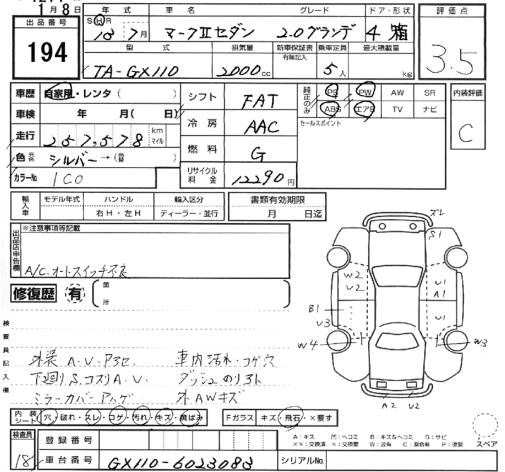 月8日
出品番号
194
年式 車名 グレード ドア・形状
SH 13年 7月 マークⅡセダン 2.0グランデ 4 箱
型式 排気量 新車保証書 乗車定員 最大積載量
有無記入
TA-GX110 2000cc 5人 kg
評価点
3.5
車歴 自家用・レンタ( )
車検 年 月( 日)
走行 257,578 km マイル
色 シルバー→(替 )
カラーNo 1C0
シフト FAT
冷房 AAC
燃料 G
リサイクル料金 12290円
純正のみ PS PW AW SR
ABS エアB TV ナビ
セールスポイント
内装評価
C
輸入車 モデル年式 ハンドル 輸入区分
右H・左H ディーラー・並行
書類有効期限
月 日迄
出品店申告欄 ※注意事項等記載
A/C.オートスイッチ不良
修復歴 有 箇所
検査員記入欄
外装 A.U.P3セ 車内汚れ・コゲ穴
下廻りS.コスリA.U. ダッシュのり3ト
ミラーカバーハゲ 外AWキズ
ズレ
S1
W2
U2
U1
A1
B1
U3
U1
W4
W3
A2 U2
内装シート 穴・破れ・スレ・コゲ・汚れ・キズ・黄ばみ Fガラス キズ・飛石・×要す
A:キズ U:ヘコミ B:キズ&ヘコミ S:サビ
スペア
検査員
18
登録番号
車台番号 GX110-6023083 シリアルNo.